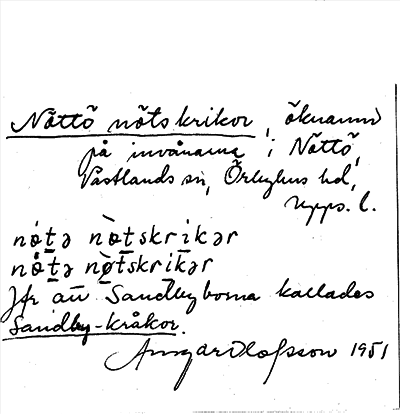 Nöttö nötskrikor, öknamn
på invånarna i Nöttö,
Västlands sn, Örbyhus hd,
Upps. l.
nøtə nøtskrikər
nøtə nøtskrikər
Jfr att Sandbyborna kallades
Sandby-kråkor.
Ansgar Olofsson 1951